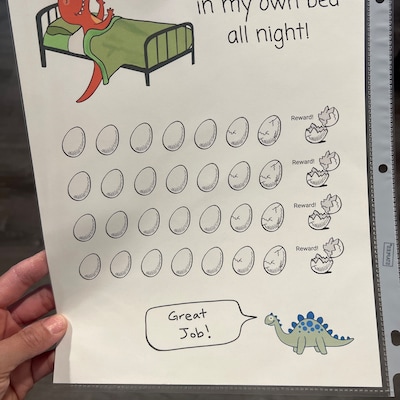 in my own bed
all night!
Reward!
Reward!
Reward!
Reward!
Great
Job!